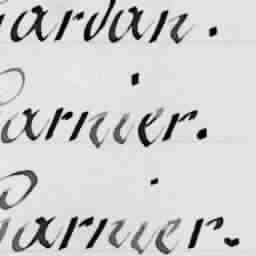 Gardan.
Garnier.
Garnier.